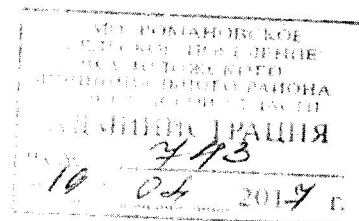 МО РОМАНОВСКОЕ
СЕЛЬСКОЕ ПОСЕЛЕНИЕ
ВСЕВОЛОЖСКОГО
МУНИЦИПАЛЬНОГО РАЙОНА
АДМИНИСТРАЦИЯ
743
10 04 2017 г.